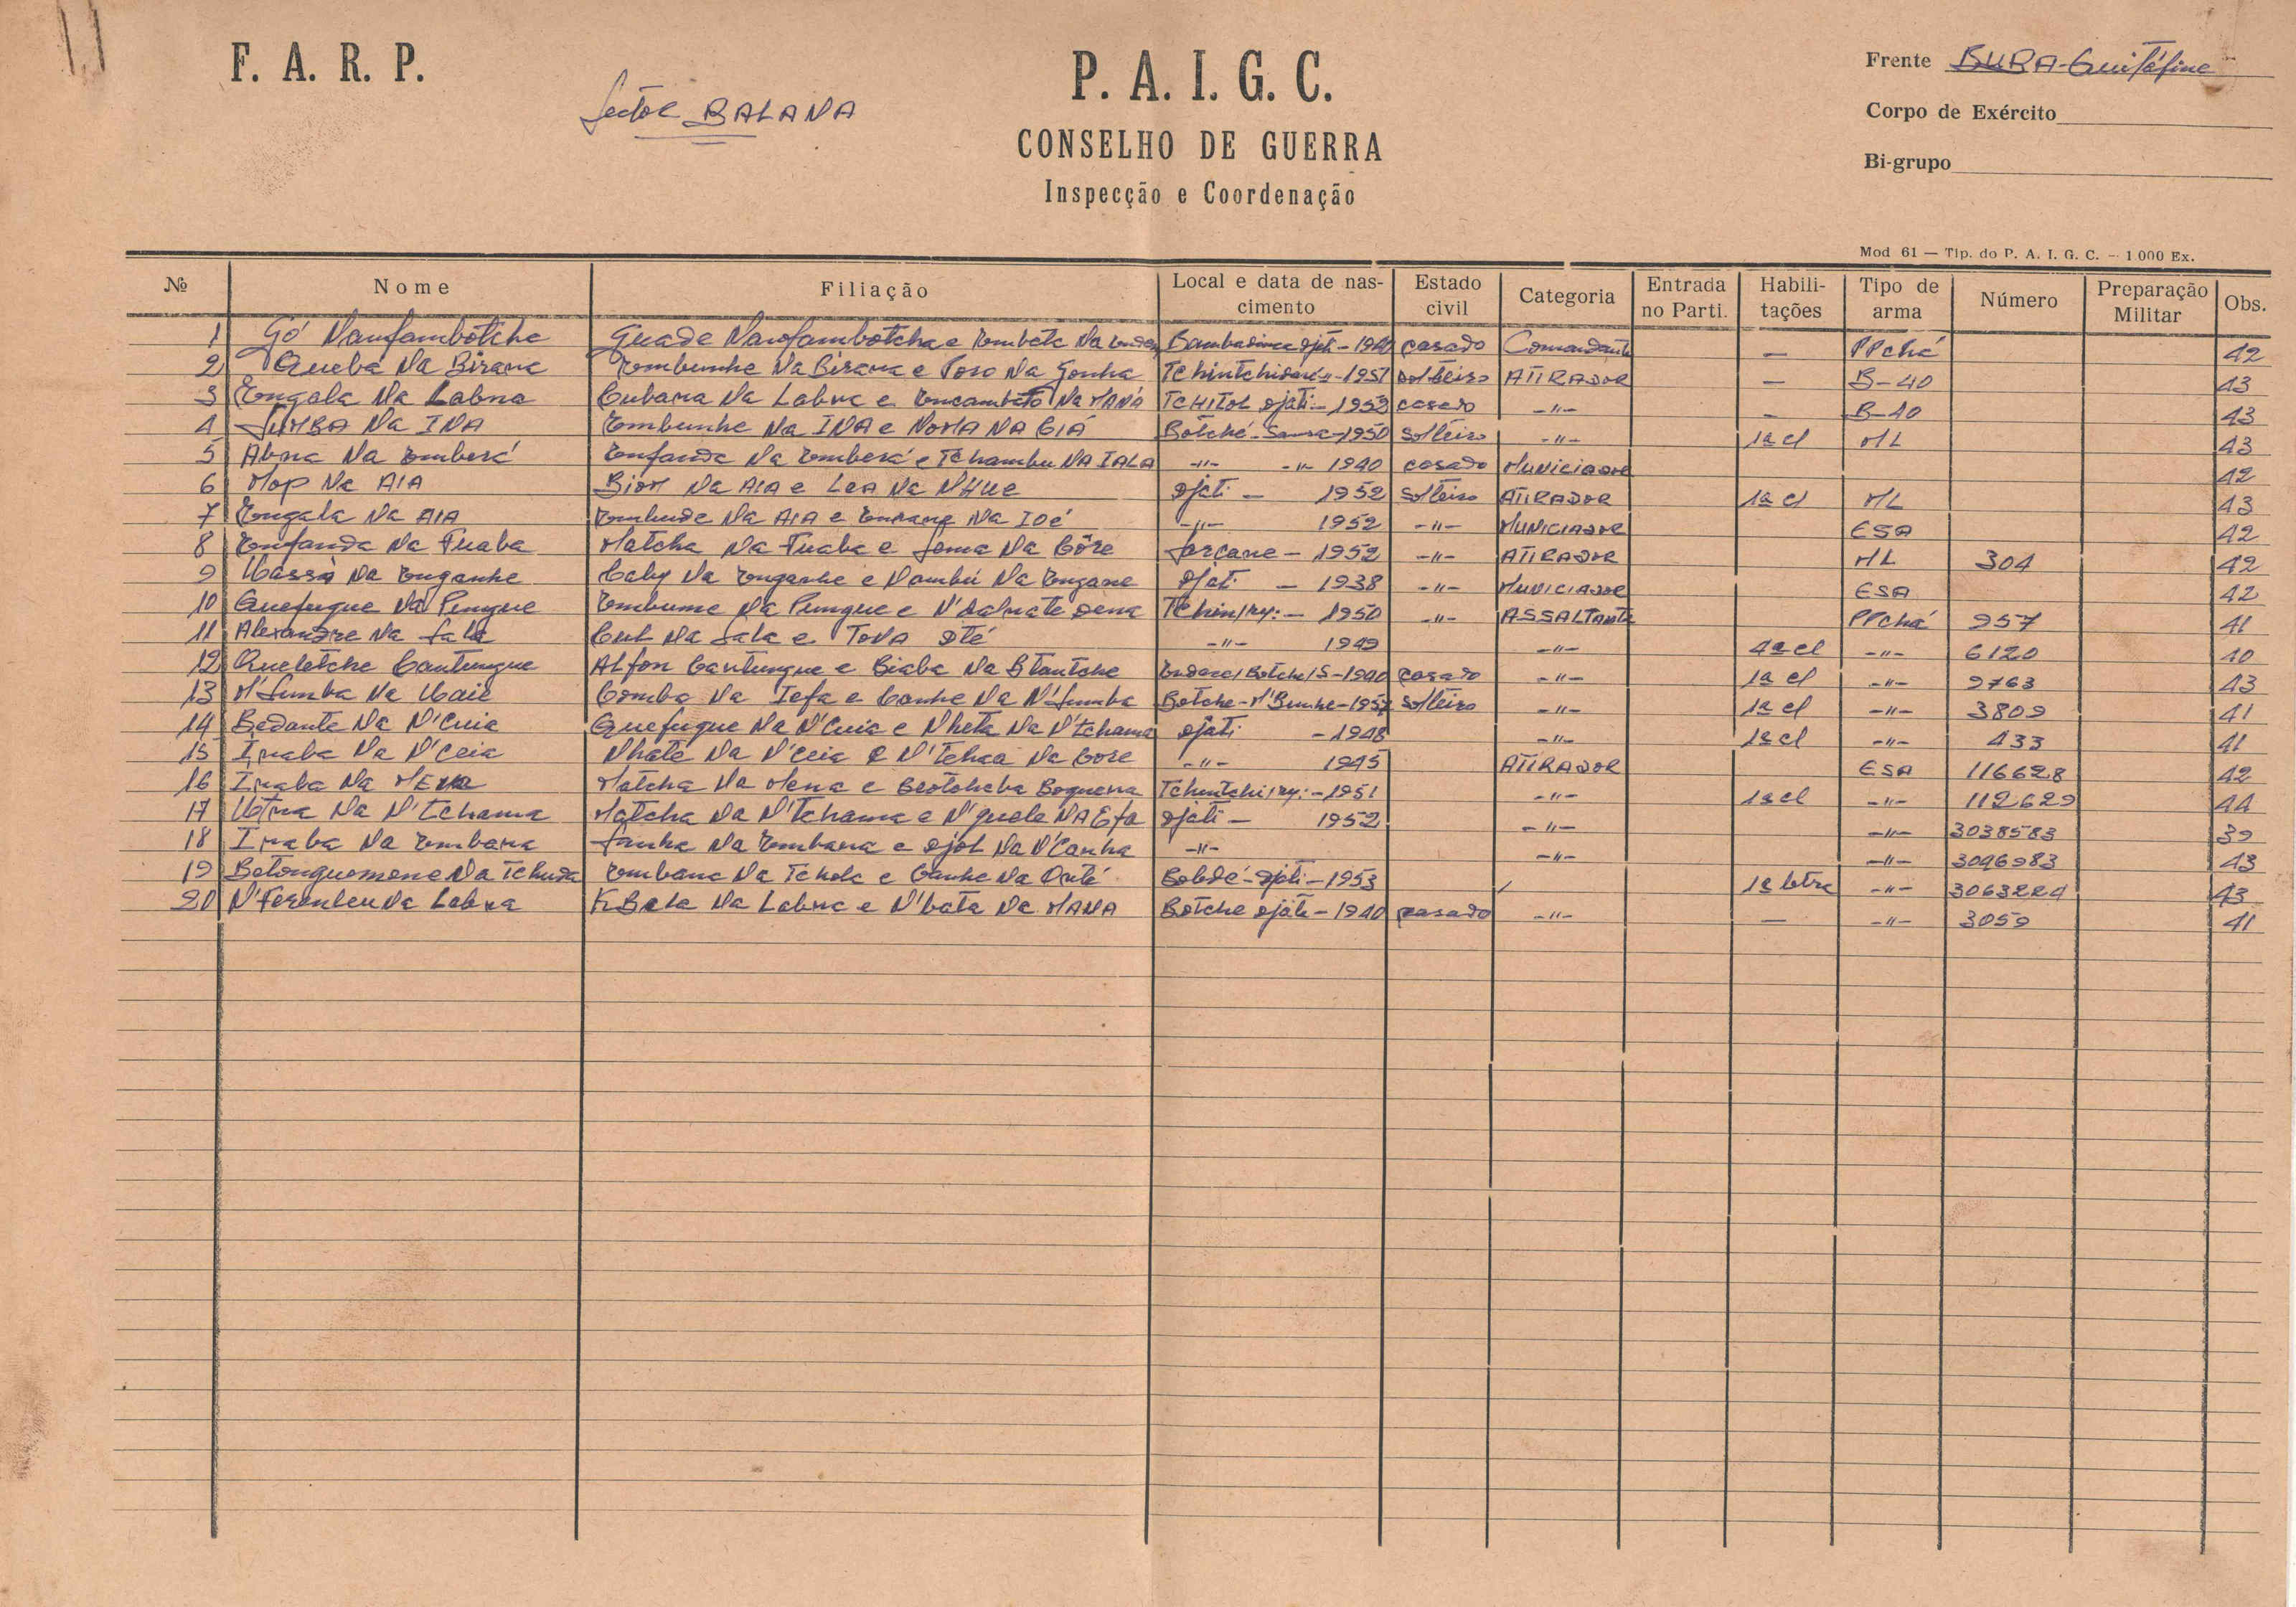 F. A. R. P.
Sector BALANA
P. A. I. G. C.
CONSELHO DE GUERRA
Inspecção e Coordenação
Frente BURA-Guitáfine
Corpo de Exército
Bi-grupo
Mod 61 — Tip. do P. A. I. G. C. — 1 000 Ex.
№ Nome Filiação Local e data de nas-cimento Estado civil Categoria Entrada no Parti. Habili-tações Tipo de arma Número Preparação Militar Obs.
1 Gó Nanfambotche Guade Nanfambotcha e Na Bambadinca Djati - 1940 casado Comandante — PPchá 42
2 Queba Na Birana Tombunhe Na Birana e Na Gonha 1951 solteiro ATIRADOR — B-40 43
3 Tongala Na Labna Cubana Na Labna e Na MANÁ TCHITOL Djati - 1953 casado -"- - B-40 43
4 SUMBA Na INA Tombunhe Na INA e NOMA NA GIÁ Botché - 1950 solteiro -"- 1ª cl ML 43
5 Abna Na Tomberá Tonfanda Na Tomberá e Tchambu NA IALA -"- -"- 1940 casado MUNICIADOR 42
6 Mop Na AIA BIOM Na AIA e LEA Na NHUE Djati - 1952 solteiro ATIRADOR 1ª cl ML 43
7 Tongala Na AIA Na AIA e Na IOÉ -"- 1952 -"- MUNICIADOR ESA 42
8 Tonfanda Na Fuaba Matcha Na Fuaba e Na Côre - 1952 -"- ATIRADOR ML 304 42
9 Na Tonganhe Na Tonganhe e Nambú Na Djati - 1938 -"- MUNICIADOR ESA 42
10 Quefugue Na Pungue Tombume Na Pungue e 1950 -"- ASSALTANTE PPchá 957 41
11 Alexandre Na Sala Na Sala e -"- 1949 -"- 4ª cl -"- 6120 40
12 Queletche Cantungue Alfon Cantungue e Biaba Na 1940 casado -"- 1ª cl -"- 9763 43
13 N'Sumba Na Comba Na Iefa e Canhe Na N'Sumba Botche - N'Bunhe - solteiro -"- 1ª cl -"- 3809 41
14 Bedanta Na N'Cuia Quefugue Na N'Cuia e Nheta Na N'tchama Djati - 1948 -"- 1ª cl -"- 433 41
15 Inaba Na N'Ceia Nhate Na N'Ceia e N'Tchaa Na Gore -"- 1945 ATIRADOR ESA 116628 42
16 Inaba Na MENA Matcha Na Mena e Boquena 1951 -"- 1ª cl -"- 112629 44
17 Na N'Tchama Matcha Na N'Tchama e NA Efa Djati - 1952 -"- -"- 3038583 39
18 Inaba Na Tombana Sanha Na Tombana e Djol Na N'Canha -"- -"- -"- 3096983 43
19 Betonguomene Na Tchuda Tombana Na e Canhe Na Bolodé - Djati - 1953 1ª letra -"- 3063224 43
20 Na Labna Na Labna e N'bata Na MANA Botche Djati - 1940 casado -"- — -"- 3059 41